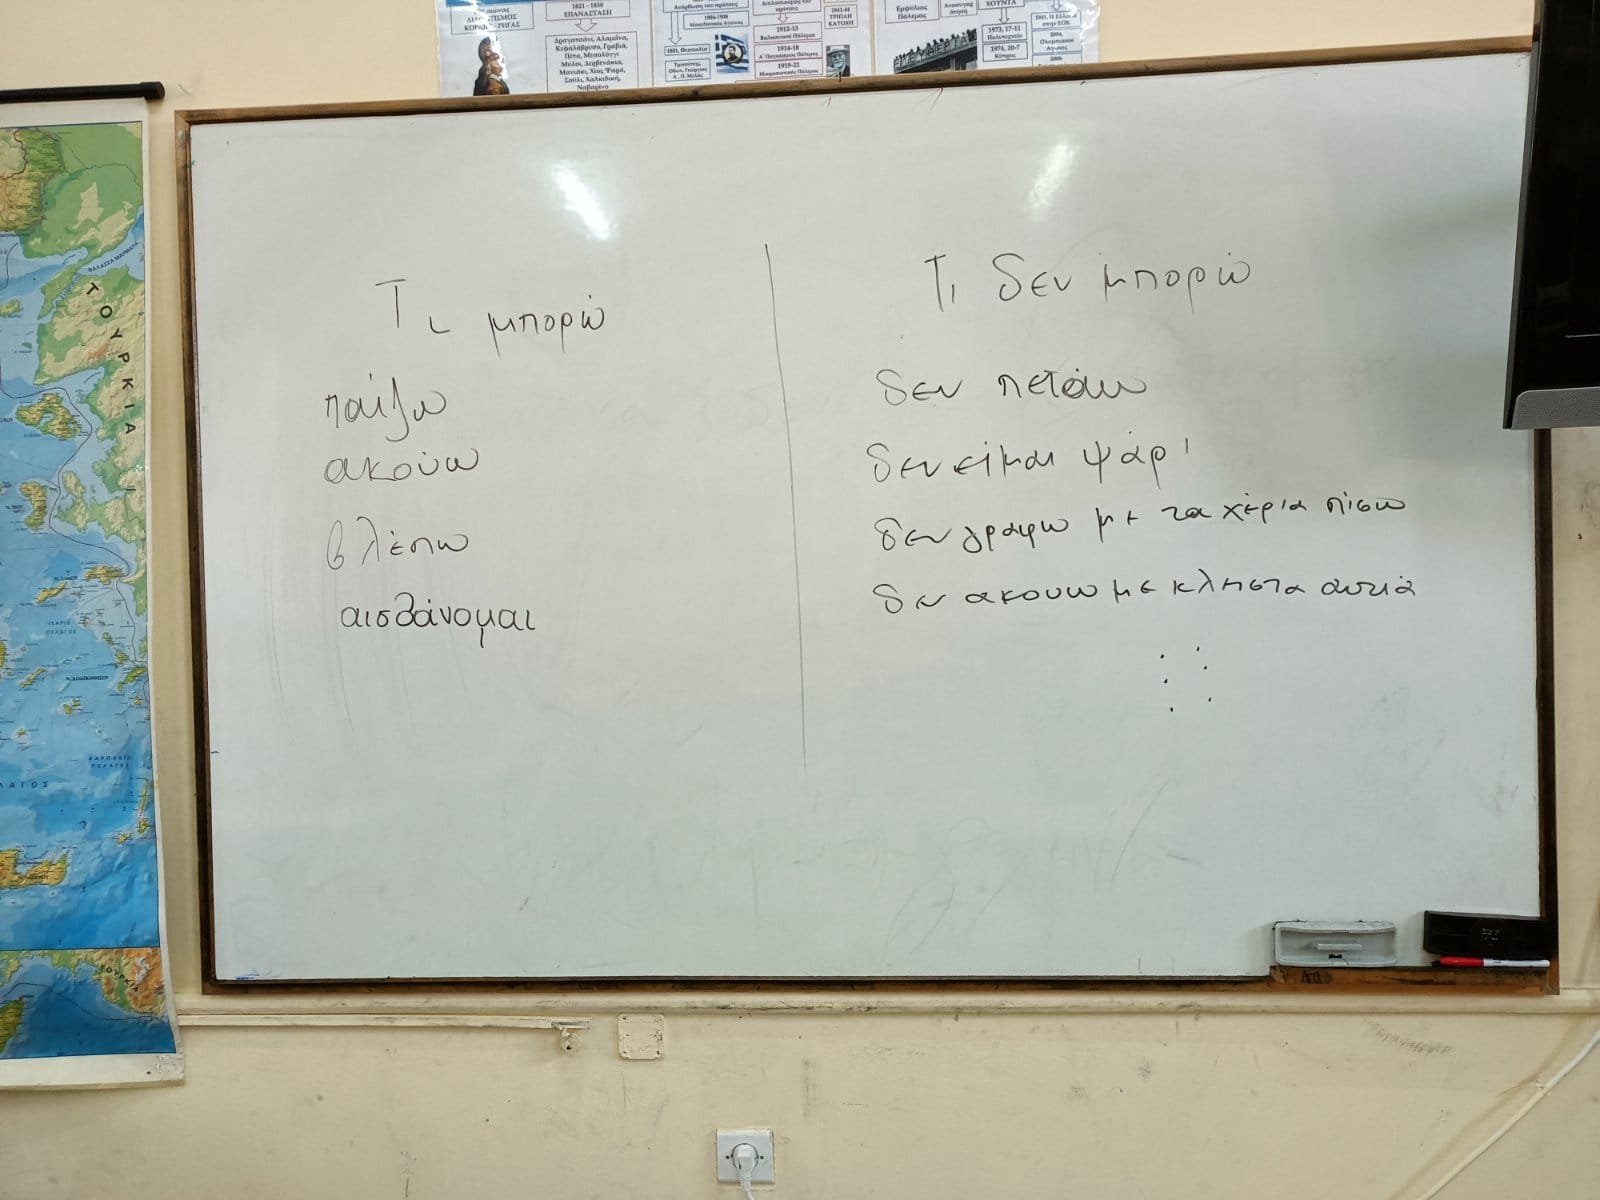 1821 - 1830
ΕΠΑΝΑΣΤΑΣΗ
Δραγατσάνι, Αλαμάνα,
Κεφαλόβρυσο, Γραβιά,
Πέτα, Μεσολόγγι
Μύλοι, Δερβενάκια,
Μανιάκι, Χίος Ψαρά,
Σούλι, Χαλκιδική,
Ναβαρίνο
ΚΟΡΑΗΣ - ΡΗΓΑΣ
1904-1908
Μακεδονικός Αγώνας
1881, Θεσσαλία
1912-13
Βαλκανικοί Πόλεμοι
1914-18
Α' Παγκόσμιος Πόλεμος
1919-22
Μικρασιατικός Πόλεμος
1941-44
ΤΡΙΠΛΗ
ΚΑΤΟΧΗ
Εμφύλιος
Πόλεμος
ΧΟΥΝΤΑ
1973, 17-11
Πολυτεχνείο
1974, 20-7
Κύπρος
ΕΛΕΥΘΕΡΙΑ
2004,
Ολυμπιακοί
Αγώνες
Τι μπορώ
παίζω
ακούω
βλέπω
αισθάνομαι
Τι δεν μπορώ
δεν πετάω
δεν είμαι ψάρι
δεν γραφω με τα χέρια πίσω
δεν ακουω με κληστα αυτιά
ΘΑΛΑΣΣΑ ΜΑΡΜΑΡΑ
ΤΟΥΡΚΙΑ
ΙΚΑΡΙΟ
ΠΕΛΑΓΟΣ
ΚΑΡΠΑΘΙΟ
ΠΕΛΑΓΟΣ
ΤΟΥΡΚΙΑ